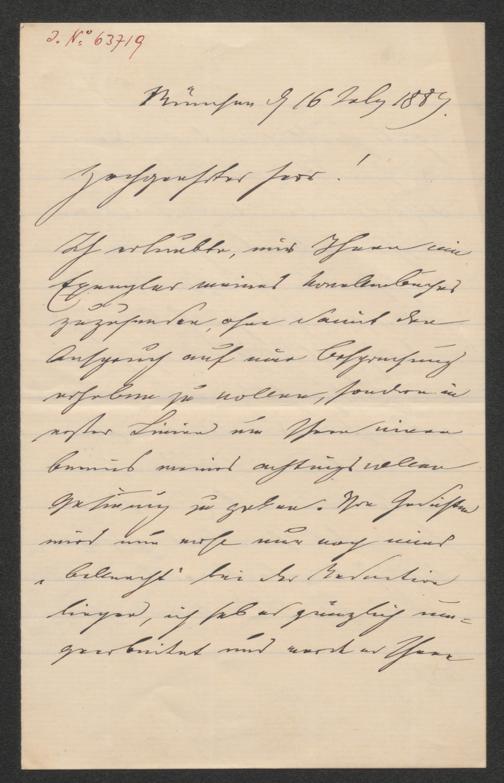 J. Nº 63719
München d 16 July 1889.
Hochgeehrter Herr!
Ich erlaubte, mir Ihnen ein
Exemplar meines Novellenbuches
zuzusenden, ohne damit den
Anspruch auf eine Besprechung
erheben zu wollen, sondern in
erster Linie um Ihnen einen
Beweis meiner achtungsvollen
Gesinnung zu geben. Von Gedichten
wird nun wohl nur noch eines
bei der Redaction
liegen, ich hab es gänzlich um=
gearbeitet und werde es Ihnen